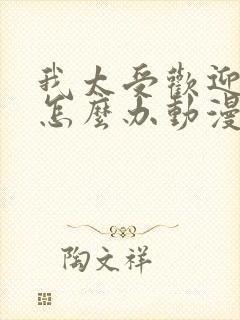 我太受歡迎
怎麼办動漫
陶文祥